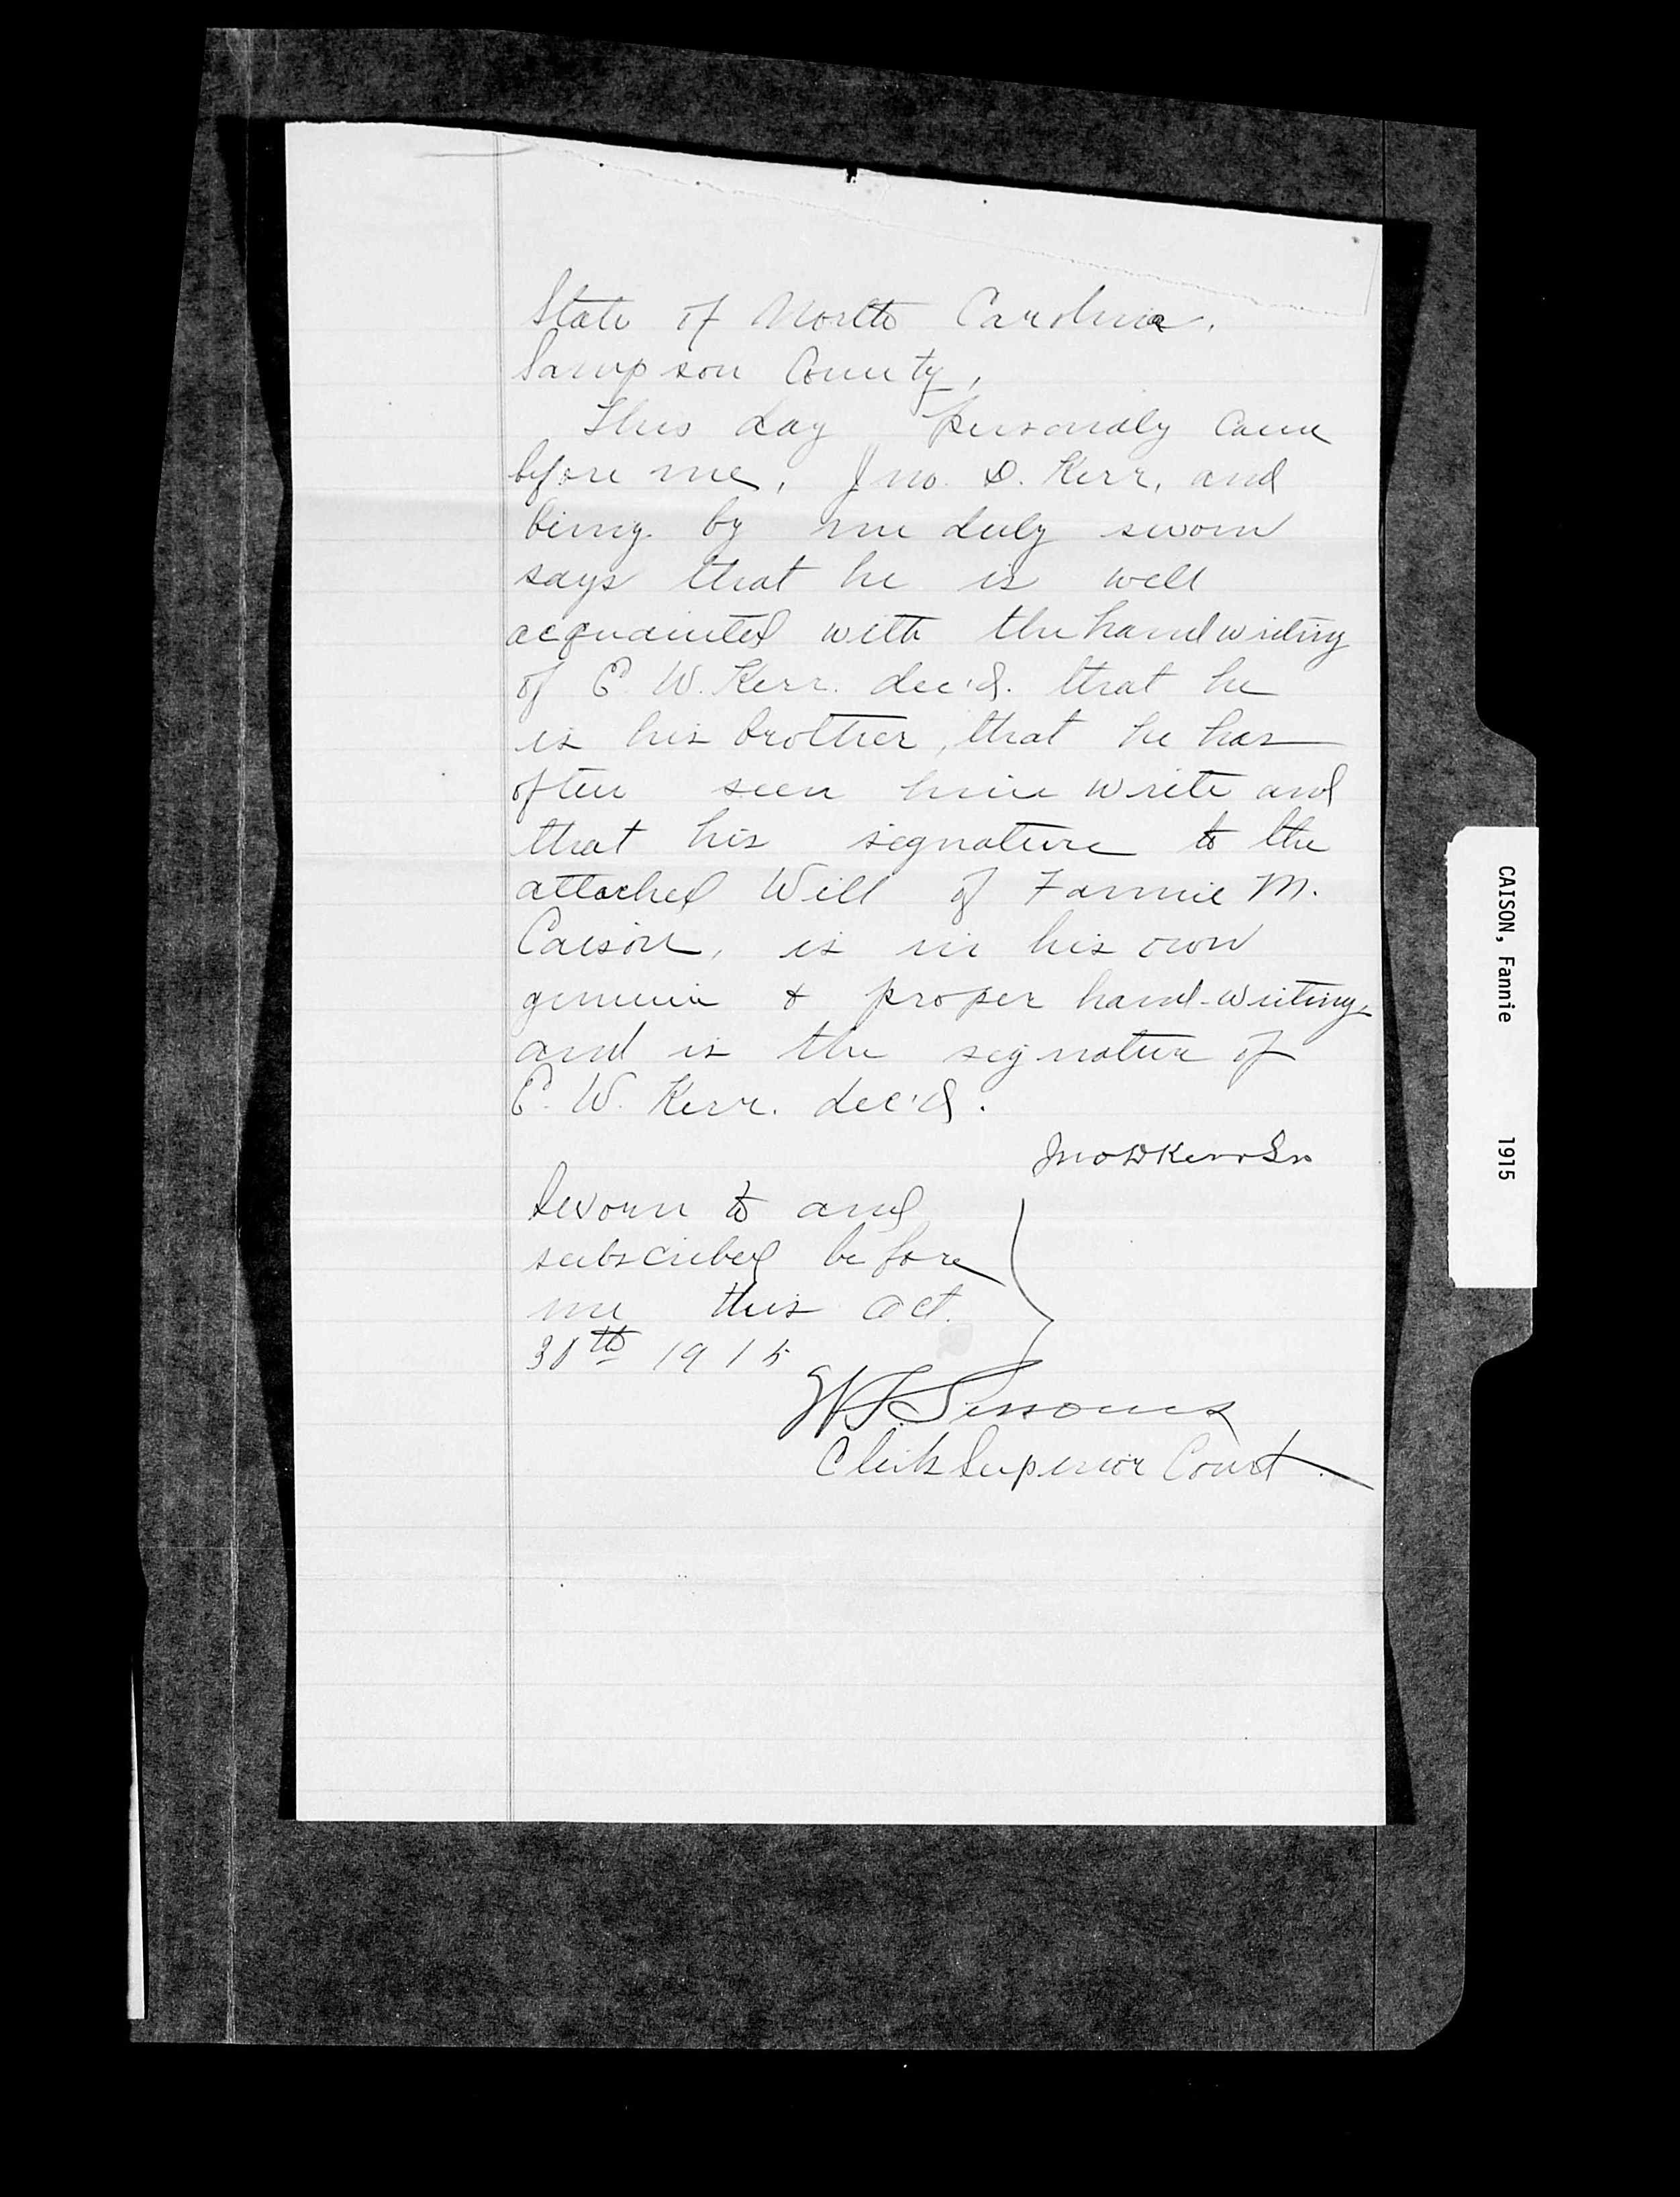 State of North Carolina.
Sampson County,
This day personally came
before me, Jno. D. Kerr, and
being by me duly sworn
says that he is well
acquainted with the handwriting
of E. W. Kerr. dec'd. that he
is his brother, that he has
often seen him write and
that his signature to the
attached Will of Fannie M.
Caison, is in his own
genuine & proper hand-writing
and is the signature of
E. W. Kerr. dec'd.
Jno D Kerr Sr
Sworn to and
subscribed before
me this Oct.
30th 1915
W F Sessoms
Clerk Superior Court.
CAISON, Fannie 1915